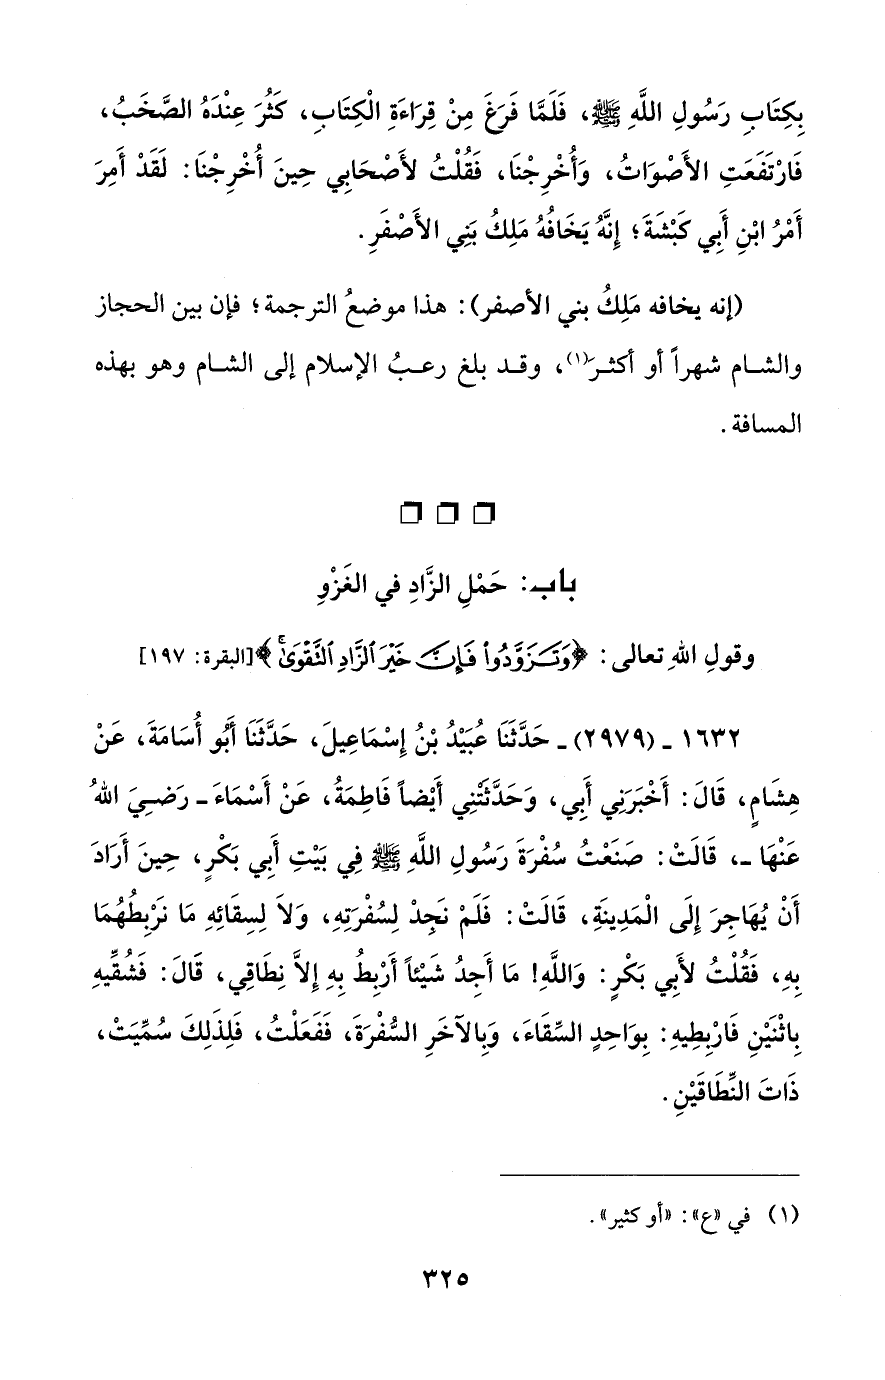 بِكِتَابِ رَسُولِ اللَّهِ ﷺ، فَلَمَّا فَرَغَ مِنْ قِرَاءَةِ الْكِتَابِ، كَثُرَ عِنْدَهُ الصَّخَبُ،
فَارْتَفَعَتِ الأَصْوَاتُ، وَأُخْرِجْنَا، فَقُلْتُ لأَصْحَابِي حِينَ أُخْرِجْنَا: لَقَدْ أَمِرَ
أَمْرُ ابْنِ أَبِي كَبْشَةَ؛ إِنَّهُ يَخَافُهُ مَلِكُ بَنِي الأَصْفَرِ.
(إنه يخافه مَلِكُ بني الأصفر): هذا موضعُ الترجمة؛ فإن بين الحجاز
والشام شهراً أو أكثر(١)، وقد بلغ رعبُ الإسلام إلى الشام وهو بهذه
المسافة.
باب: حَمْلِ الزَّادِ في الغَزْوِ
وقولِ اللهِ تعالى: ﴿وَتَزَوَّدُواْ فَإِنَّ خَيْرَ ٱلزَّادِ ٱلتَّقْوَىٰۚ﴾[البقرة: ١٩٧]
١٦٣٢ ـ (٢٩٧٩) ـ حَدَّثَنَا عُبَيْدُ بْنُ إِسْمَاعِيلَ، حَدَّثَنَا أَبُو أُسَامَةَ، عَنْ
هِشَامٍ، قَالَ: أَخْبَرَنِي أَبِي، وَحَدَّثَتْنِي أَيْضاً فَاطِمَةُ، عَنْ أَسْمَاءَ ـ رَضِيَ اللهُ
عَنْهَا ـ، قَالَتْ: صَنَعْتُ سُفْرَةَ رَسُولِ اللَّهِ ﷺ فِي بَيْتِ أَبِي بَكْرٍ، حِينَ أَرَادَ
أَنْ يُهَاجِرَ إِلَى الْمَدِينَةِ، قَالَتْ: فَلَمْ نَجِدْ لِسُفْرَتِهِ، وَلاَ لِسِقَائِهِ مَا نَرْبِطُهُمَا
بِهِ، فَقُلْتُ لأَبِي بَكْرٍ: وَاللَّهِ! مَا أَجِدُ شَيْئاً أَرْبِطُ بِهِ إِلاَّ نِطَاقِي، قَالَ: فَشُقِّيهِ
بِاثْنَيْنِ فَارْبِطِيهِ: بِوَاحِدٍ السِّقَاءَ، وَبِالآخَرِ السُّفْرَةَ، فَفَعَلْتُ، فَلِذَلِكَ سُمِّيَتْ،
ذَاتَ النِّطَاقَيْنِ.
(١) في «ع»: «أو كثير».
٣٢٥